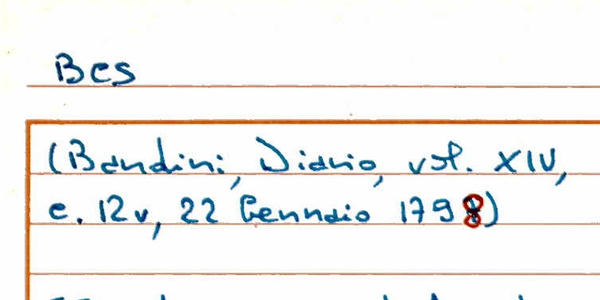 Bes
(Bandini, Diario, vol. XIV,
c. 12v, 22 Gennaio 1798)